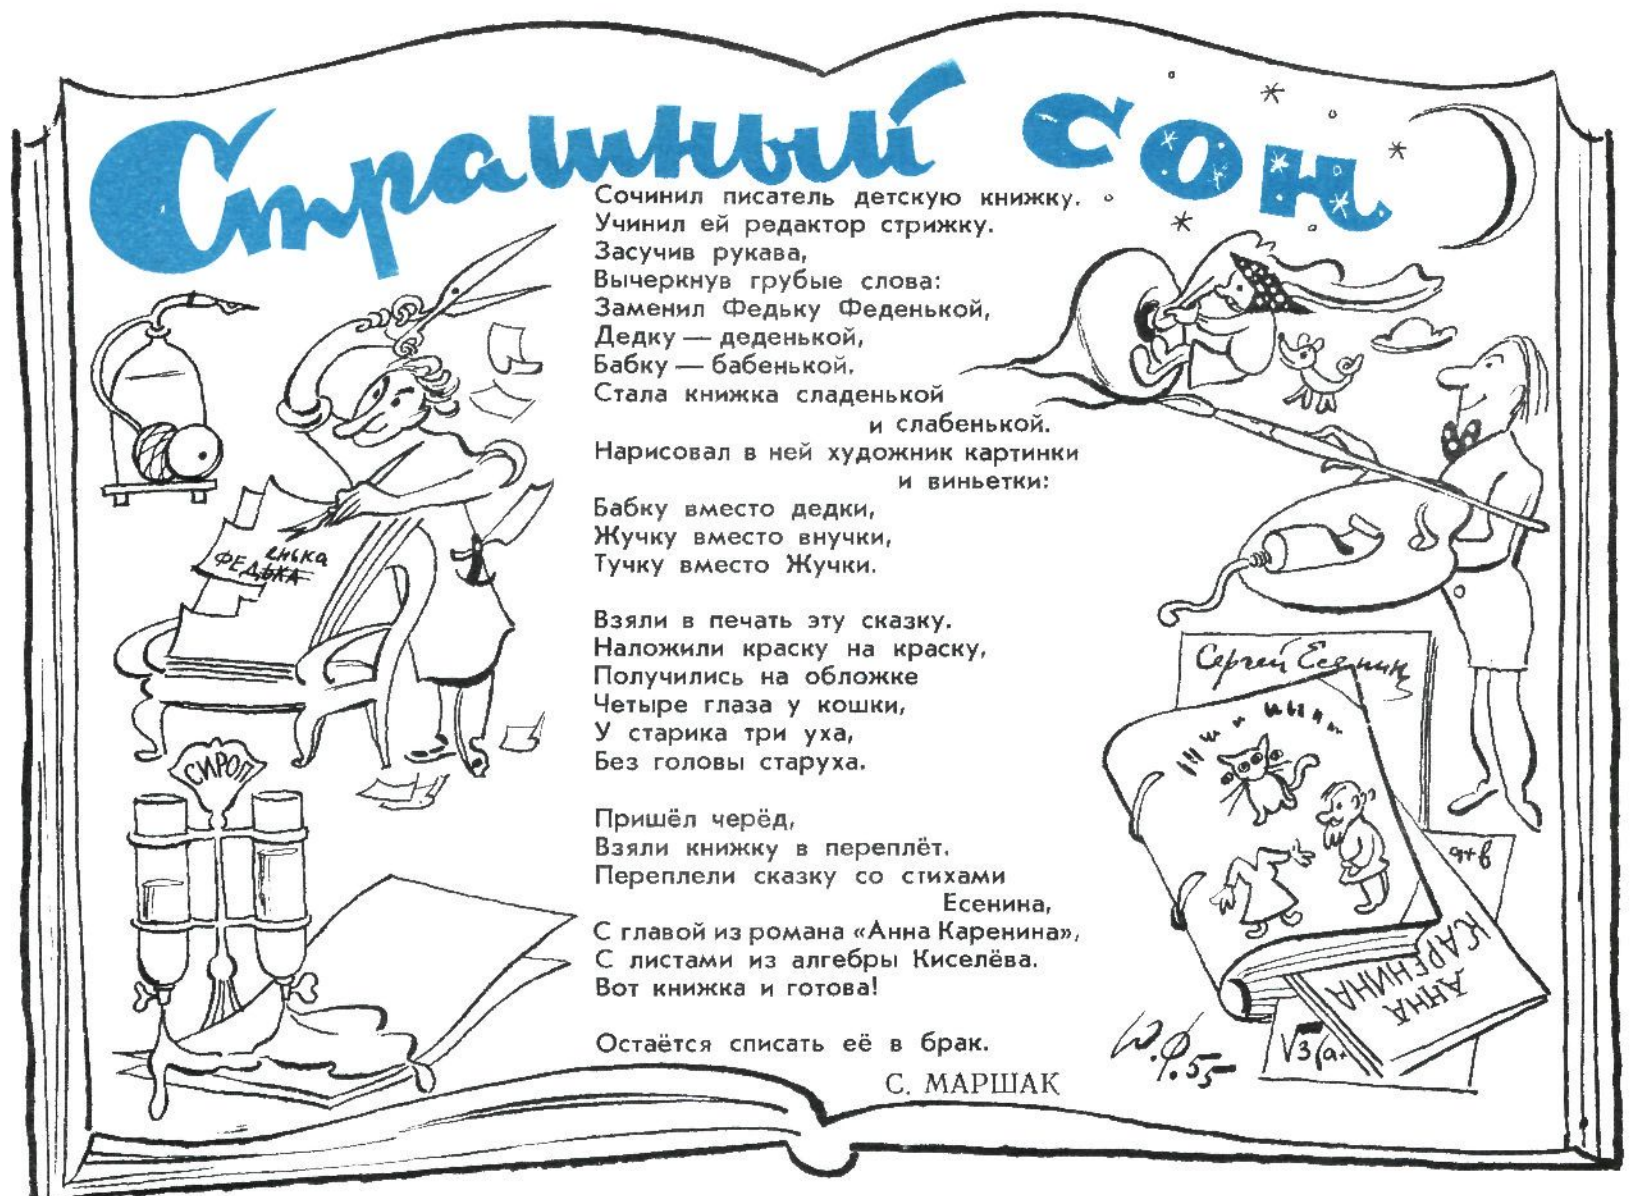 Страшный сон
Сочинил писатель детскую книжку.
Учинил ей редактор стрижку.
Засучив рукава,
Вычеркнув грубые слова:
Заменил Федьку Феденькой,
Дедку — деденькой,
Бабку — бабенькой.
Стала книжка сладенькой
и слабенькой.
Нарисовал в ней художник картинки
и виньетки:
Бабку вместо дедки,
Жучку вместо внучки,
Тучку вместо Жучки.
Взяли в печать эту сказку.
Наложили краску на краску,
Получились на обложке
Четыре глаза у кошки,
У старика три уха,
Без головы старуха.
Пришёл черёд,
Взяли книжку в переплёт.
Переплели сказку со стихами
Есенина,
С главой из романа «Анна Каренина»,
С листами из алгебры Киселёва.
Вот книжка и готова!
Остаётся списать её в брак.
С. МАРШАК
енька
ФЕДЬКА
СИРОП
Сергей Есенин
а+в
АННА
КАРЕНИНА
√3(а+
55